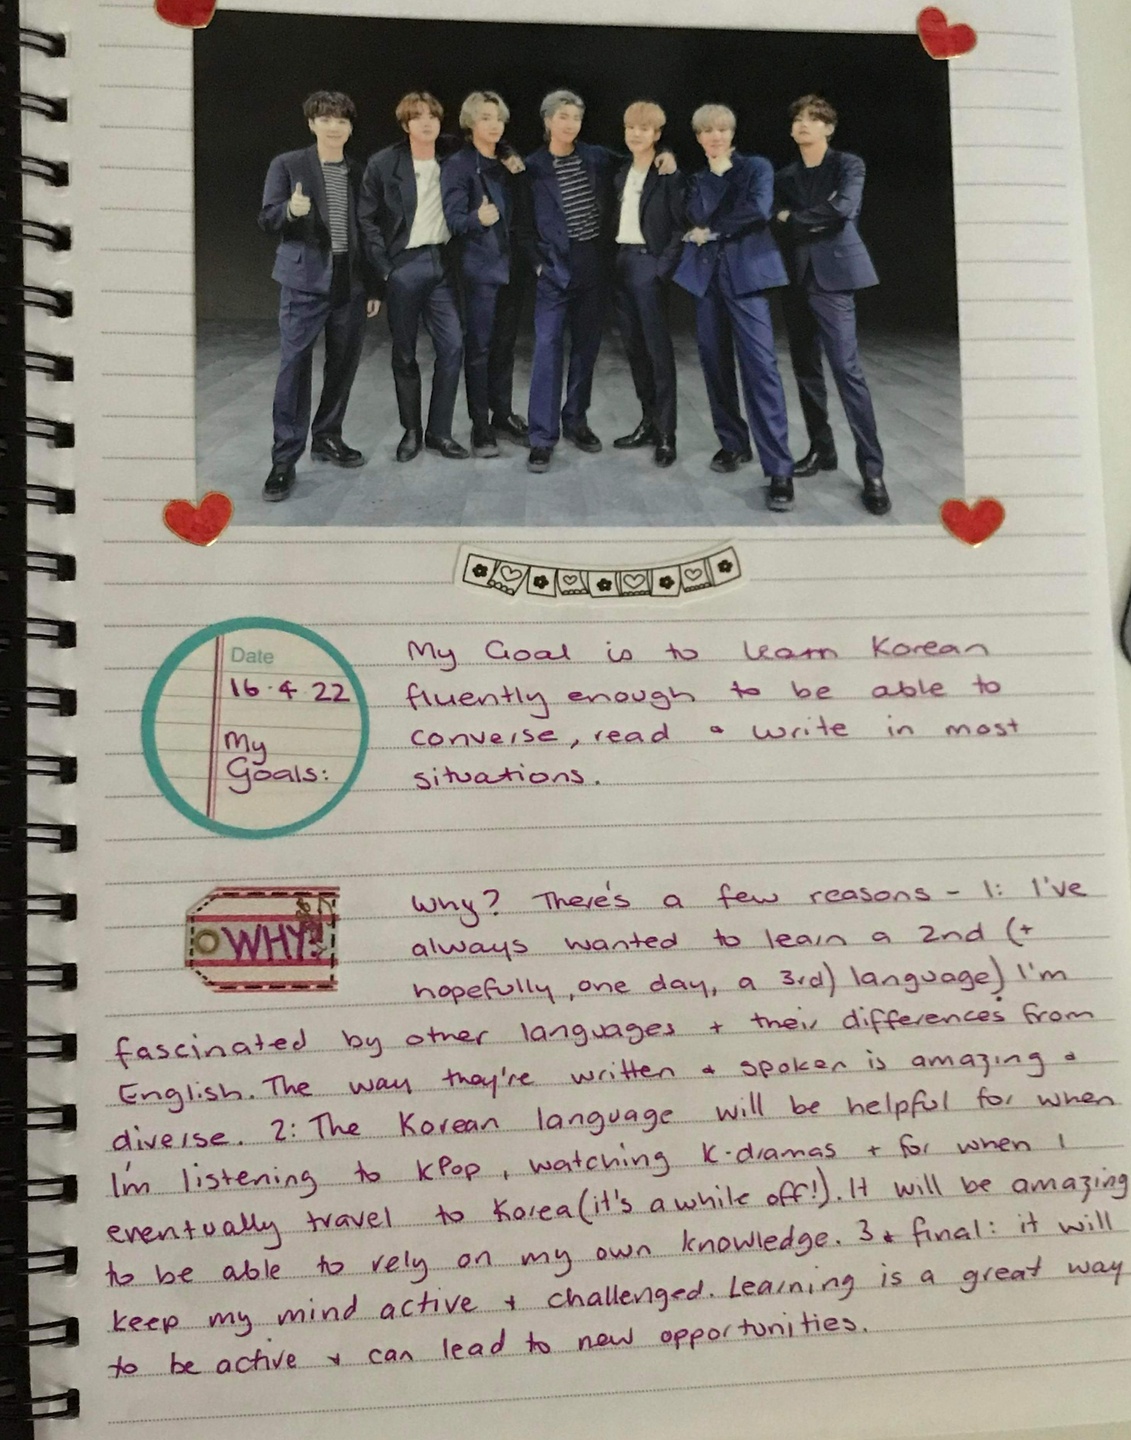 Date
16.4.22
My
Goals:
My Goal is to learn Korean
fluently enough to be able to
converse, read & write in most
situations.
WHY?
Why? There's a few reasons - 1: I've
always wanted to learn a 2nd (+
hopefully, one day, a 3rd) language) I'm
fascinated by other languages + their differences from
English. The way they're written & spoken is amazing &
diverse. 2: The Korean language will be helpful for when
I'm listening to KPop, watching K-dramas + for when I
eventually travel to Korea (it's a while off!). It will be amazing
to be able to rely on my own knowledge. 3 & final: it will
keep my mind active + challenged. Learning is a great way
to be active & can lead to new opportunities.